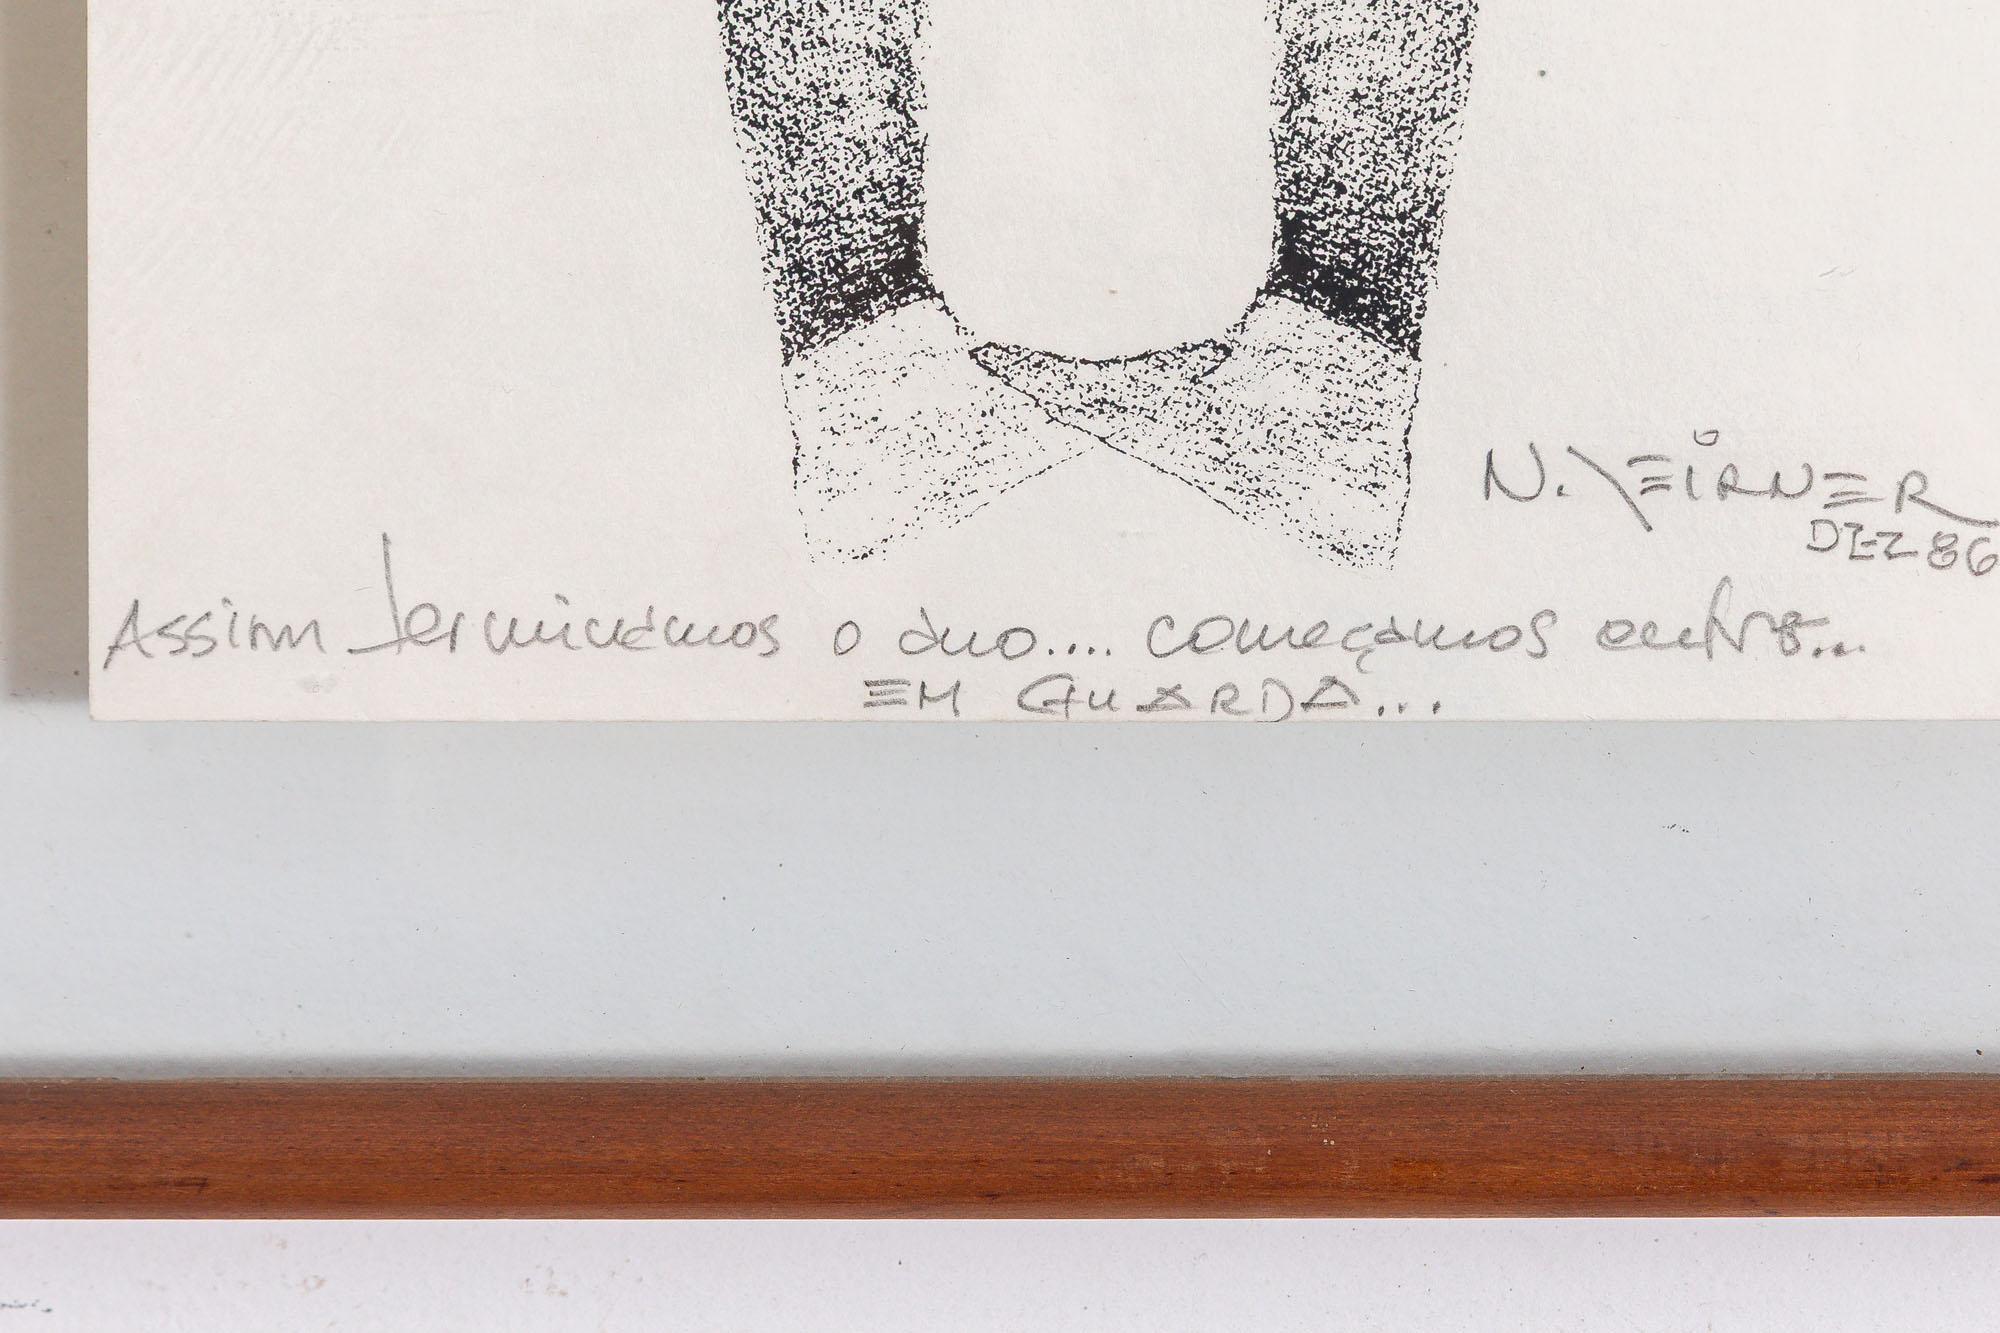 N. LEIRNER
DEZ 86
Assim terminamos o ano.... começamos outro...
EM GUARDA...